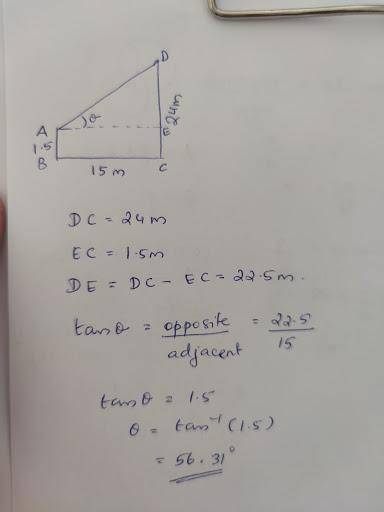 D
θ
A
E
24m
1.5
B
15 m
C
DC = 24m
EC = 1.5m
DE = DC - EC = 22.5m.
tanθ = opposite/adjacent = 22.5/15
tanθ = 1.5
θ = tan⁻¹ (1.5)
= 56.31°